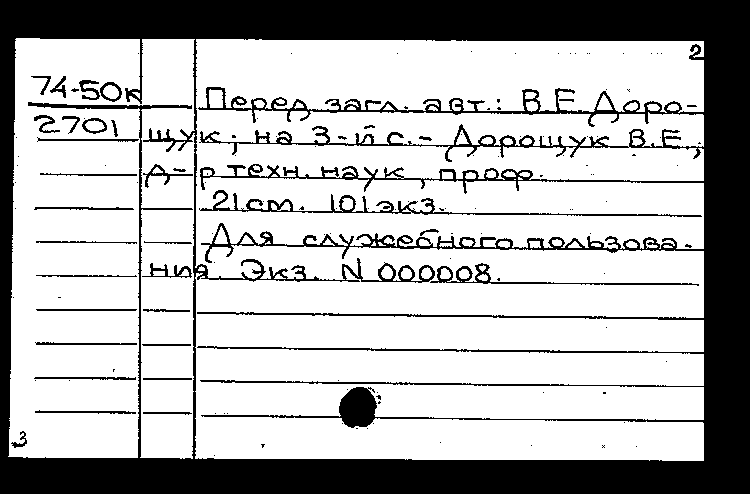 2
74-50к Перед загл. авт.: В.Е. Доро-
2701 щук; на 3-й с.- Дорощук В.Е.,
д-р техн. наук, проф.
21см. 101экз.
Для служебного пользова-
ния. Экз. N 000008.
3